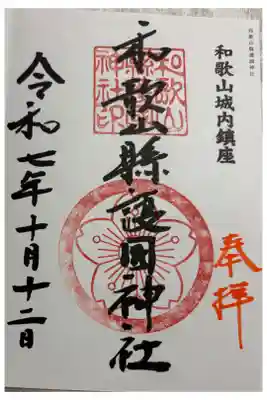 和歌山縣護國神社
和歌山城内鎮座
奉拝
和歌山縣護國神社
令和七年十月十二日